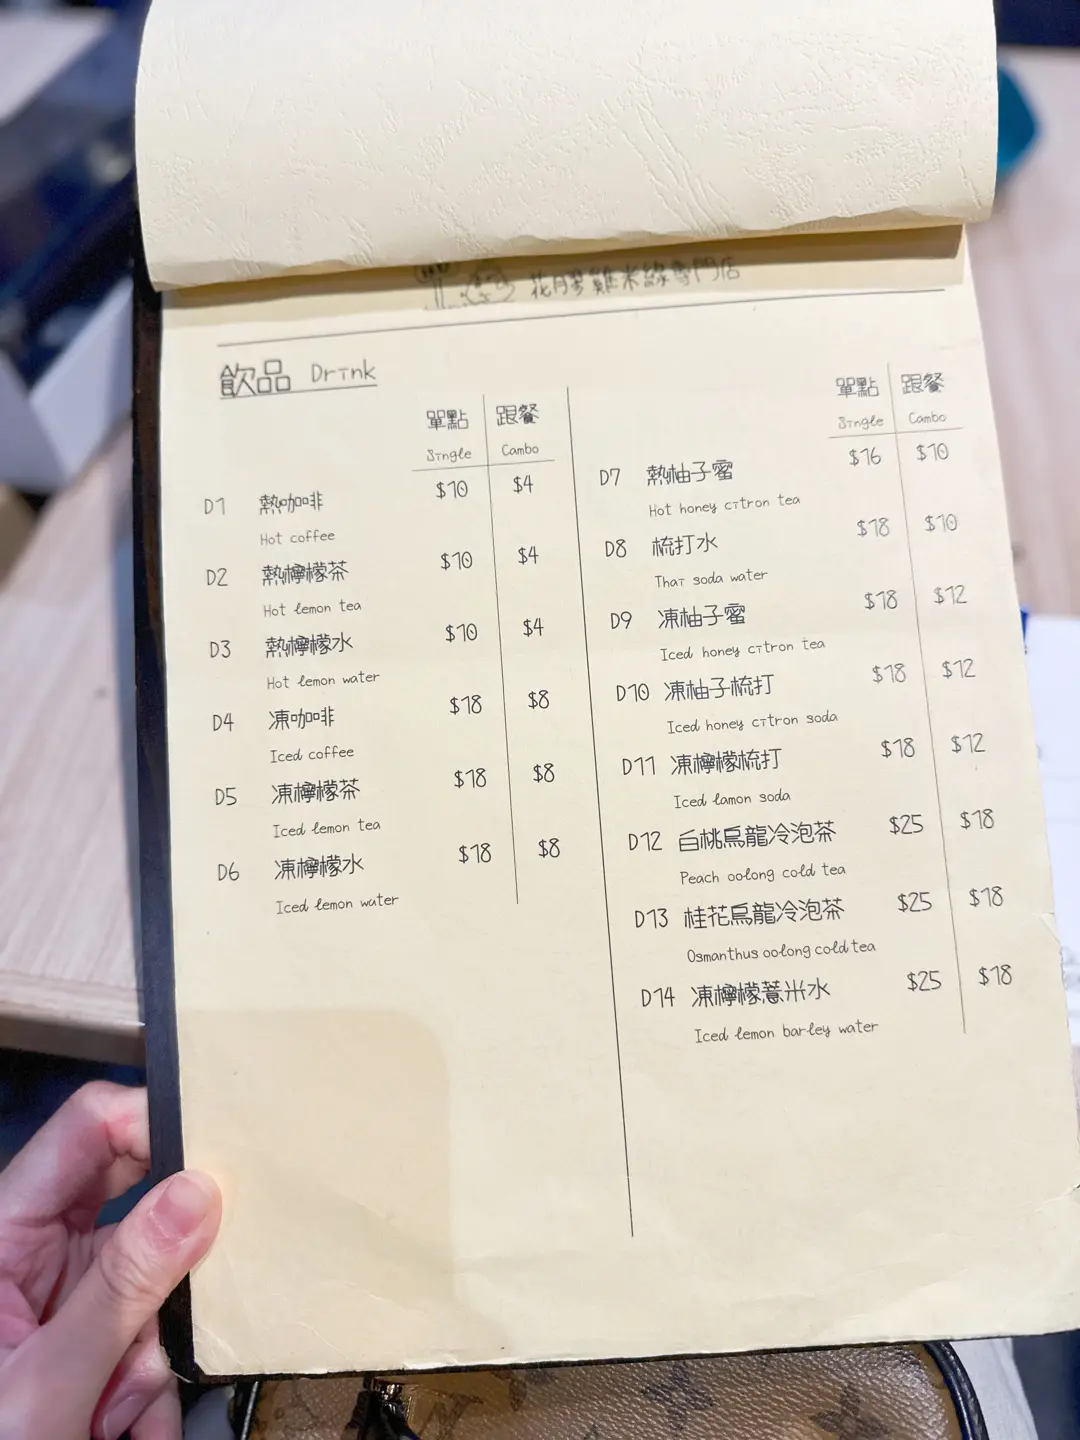 花膠雞米線專門店
飲品 Drink
單點 跟餐
Single Cambo
D1 熱咖啡 $10 $4
Hot coffee
D2 熱檸檬茶 $10 $4
Hot lemon tea
D3 熱檸檬水 $10 $4
Hot lemon water
D4 凍咖啡 $18 $8
Iced coffee
D5 凍檸檬茶 $18 $8
Iced lemon tea
D6 凍檸檬水 $18 $8
Iced lemon water
單點 跟餐
Single Cambo
D7 熱柚子蜜 $16 $10
Hot honey citron tea
D8 梳打水 $18 $10
Thai soda water
D9 凍柚子蜜 $18 $12
Iced honey citron tea
D10 凍柚子梳打 $18 $12
Iced honey citron soda
D11 凍檸檬梳打 $18 $12
Iced lamon soda
D12 白桃烏龍冷泡茶 $25 $18
Peach oolong cold tea
D13 桂花烏龍冷泡茶 $25 $18
Osmanthus oolong cold tea
D14 凍檸檬薏米水 $25 $18
Iced lemon barley water